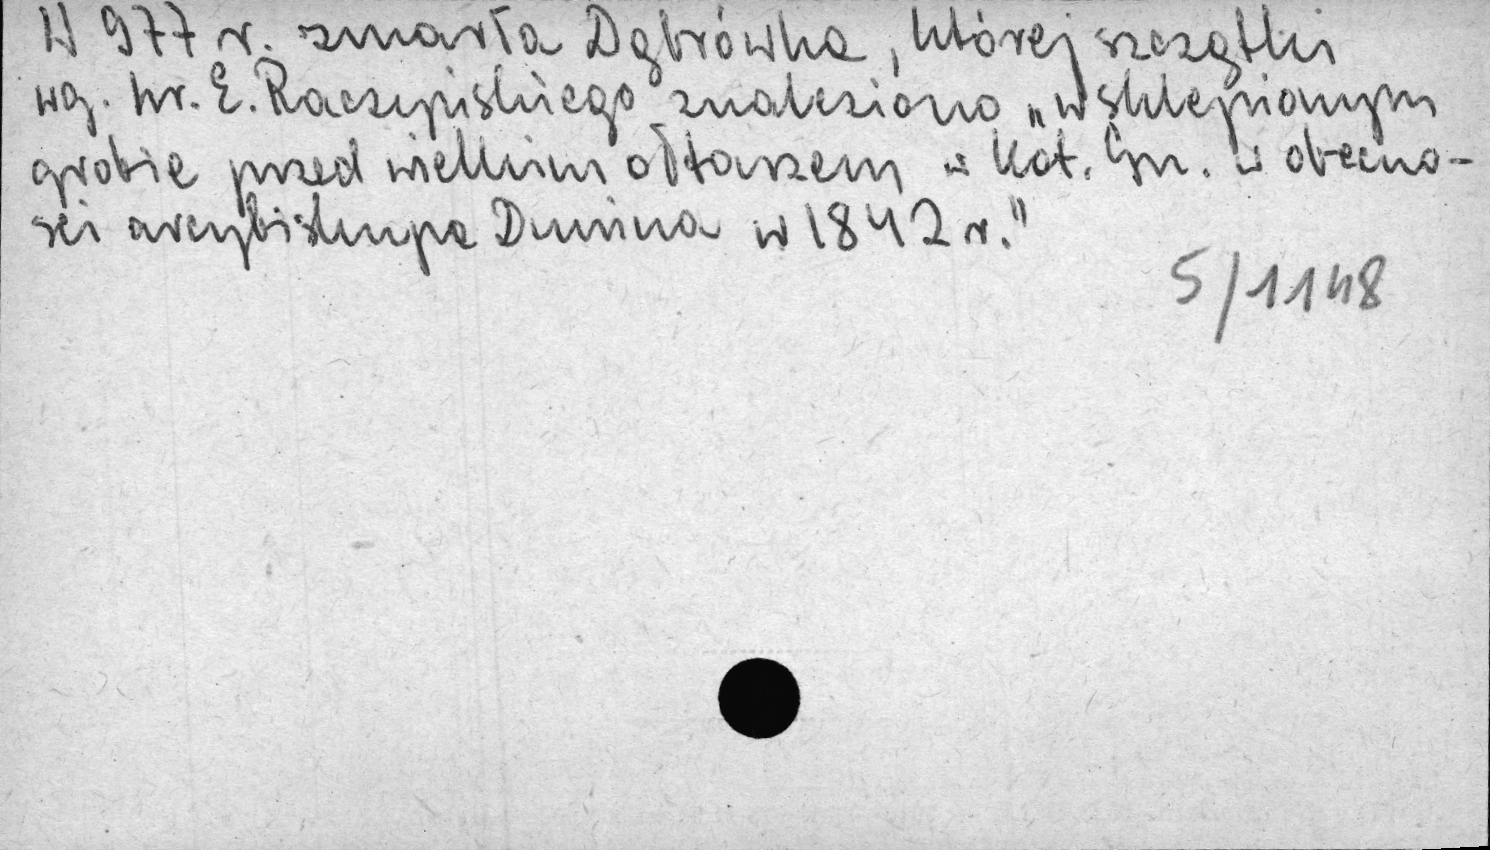 W 977 r. zmarła Dąbrówka, której szczątki
wg. hr. E. Raczyńskiego znaleziono „w sklepionym
grobie przed wielkim ołtarzem w Kat. Gn. w obecno-
ści arcybiskupa Dunina w 1842 r."
5/1148